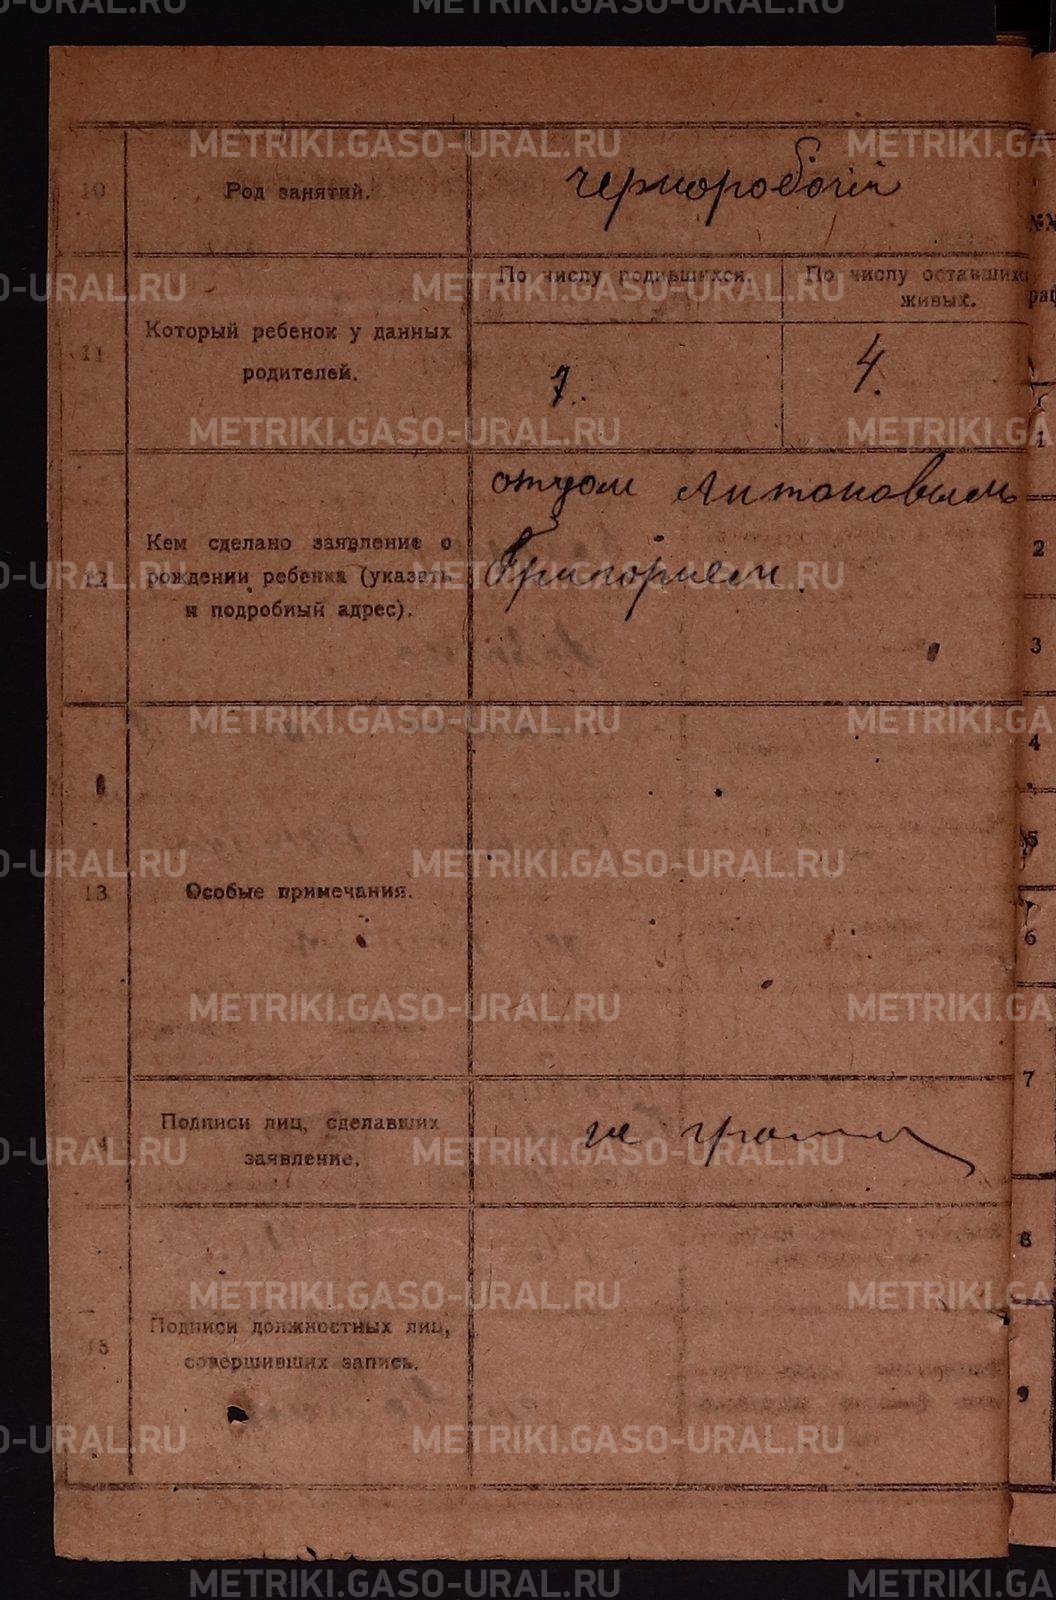 10 Род занятий. чернорабочій
По числу родившихся. По числу оставшихс
живых.
11 Который ребенок у данных
родителей.
7. 4.
12 Кем сделано заявление о
рождении ребенка (указать
и подробный адрес).
отцом Антоновым
Григорием.
13 Особые примечания.
14 Подписи лиц, сделавших
заявление.
не грам
15 Подписи должностных лиц,
совершивших запись.
№№
рац
1
2
3
4
5
6
7
8
9
METRIKI.GASO-URAL.RU